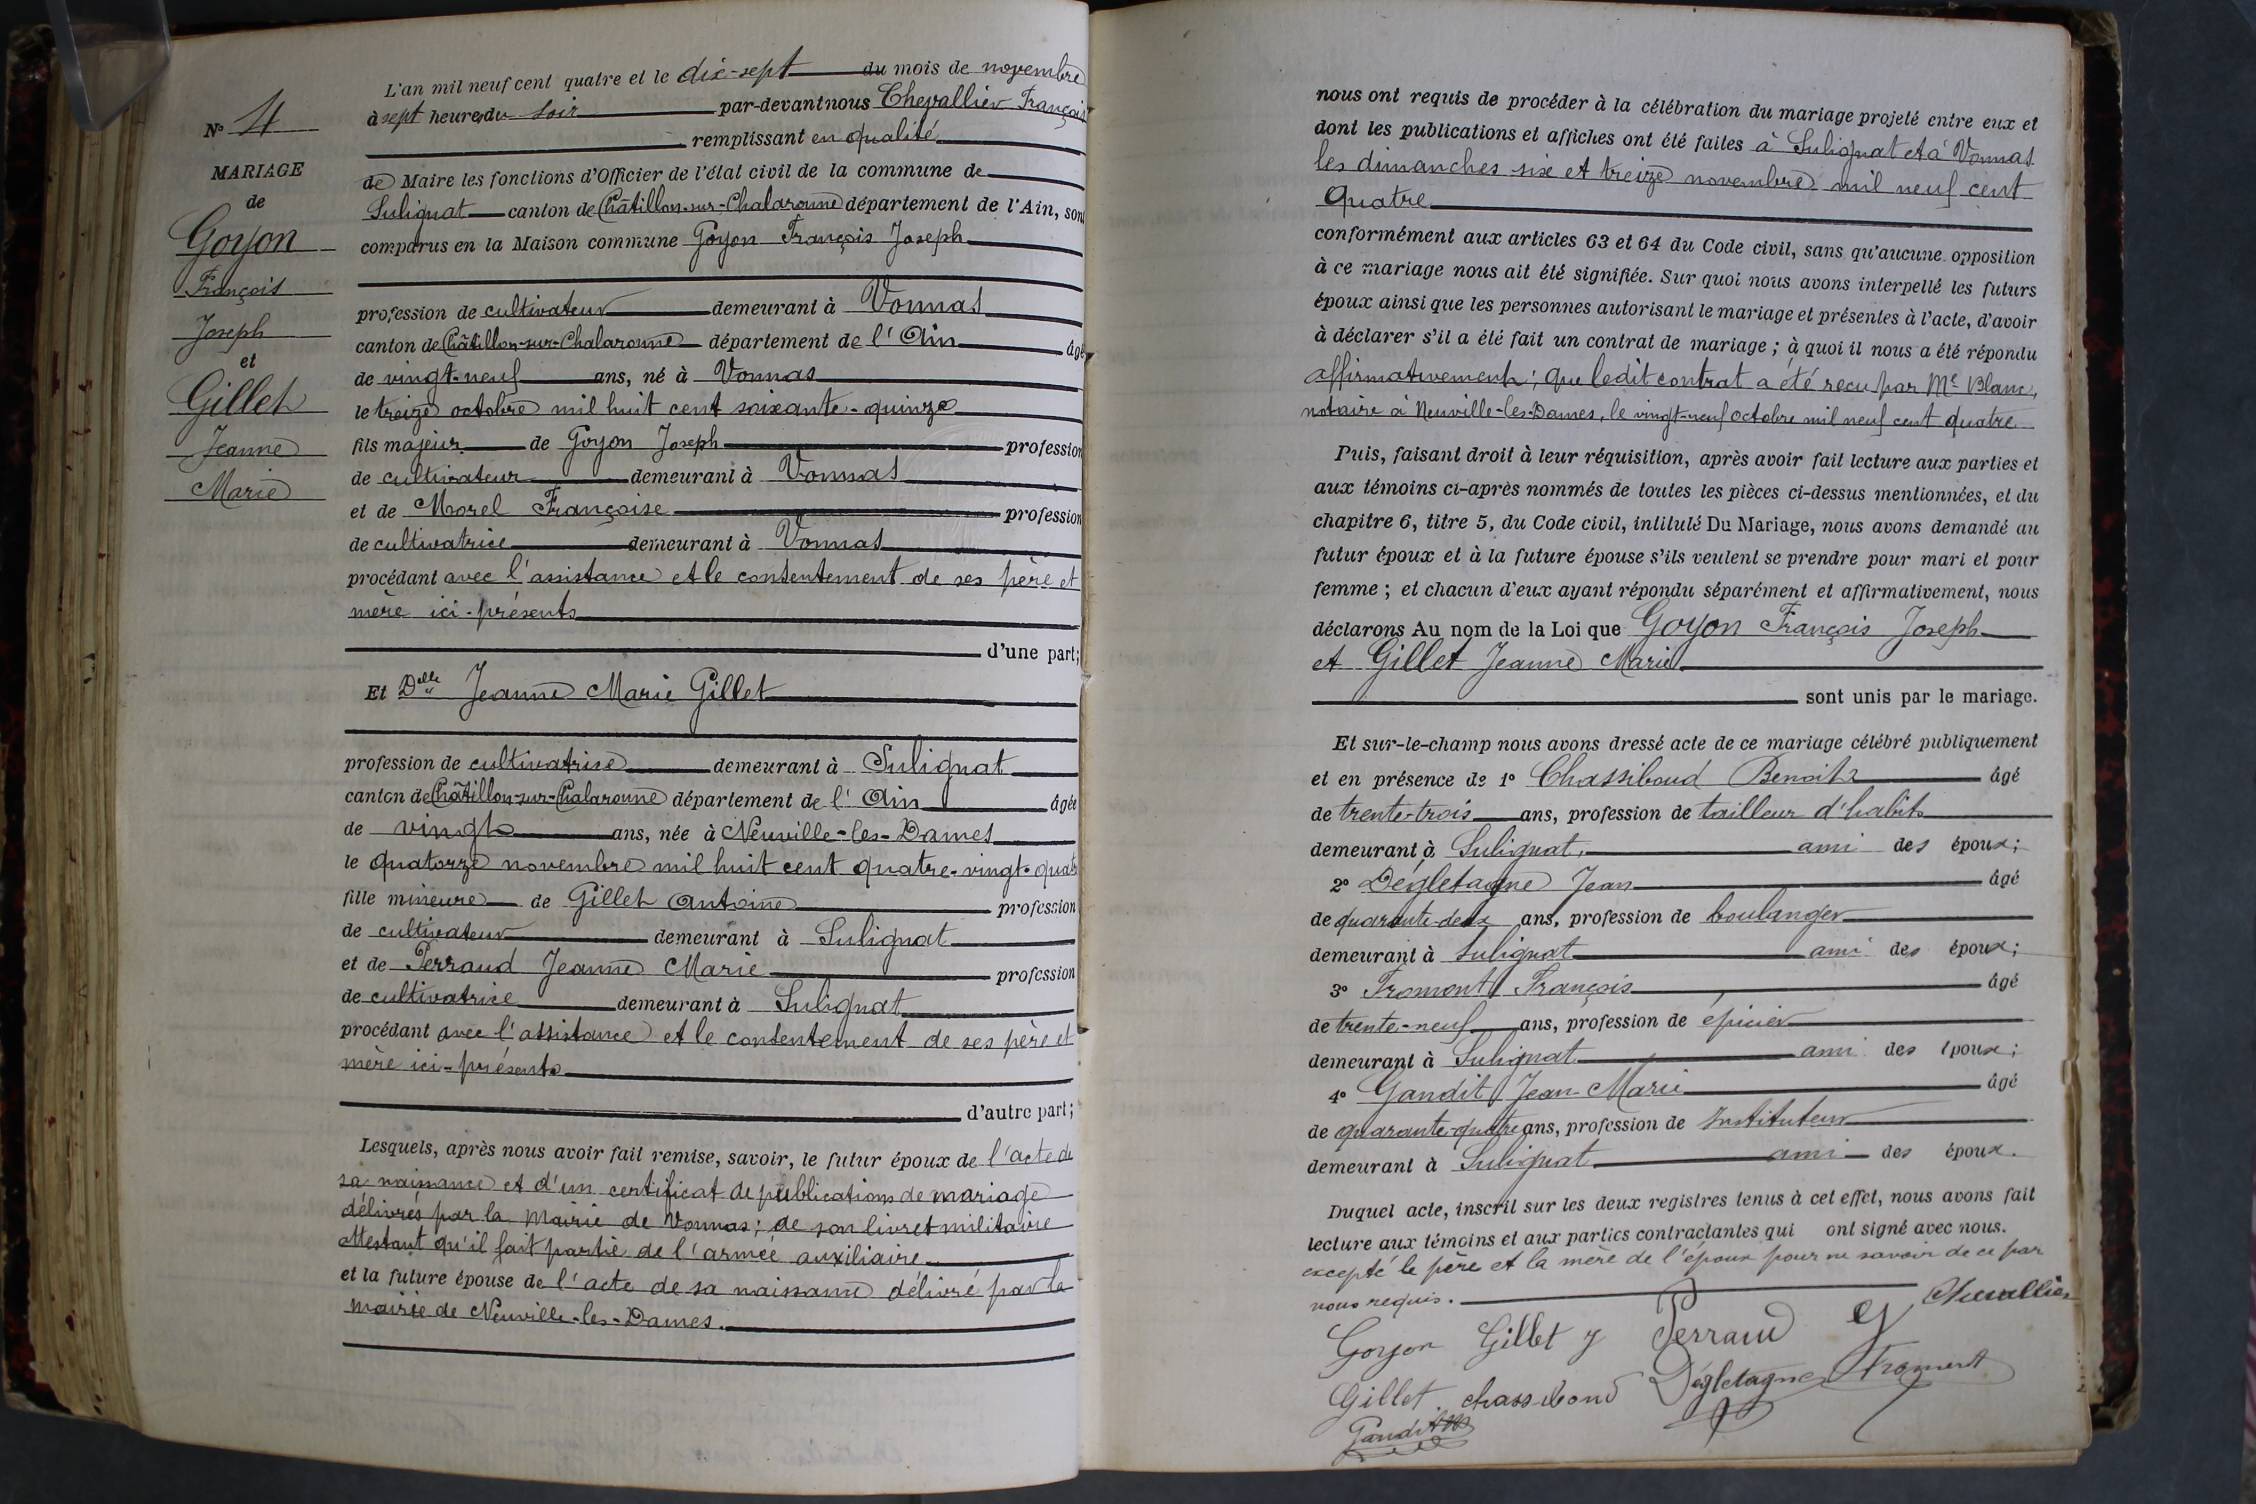 N° 4
MARIAGE
de
Goyon
François
Joseph
et
Gillet
Jeanne
Marie
L'an mil neuf cent quatre et le dix-sept du mois de novembre
à sept heures du soir par-devant nous Chevallier François
remplissant en qualité
de Maire les fonctions d'Officier de l'état civil de la commune de
Sulignat canton de Châtillon-sur-Chalaronne département de l'Ain, sont
comparus en la Maison commune Goyon François Joseph
profession de cultivateur demeurant à Vonnas
canton de Châtillon-sur-Chalaronne département de l'Ain âgé
de vingt-neuf ans, né à Vonnas
le treize octobre mil huit cent soixante-quinze
fils majeur de Goyon Joseph profession
de cultivateur demeurant à Vonnas
et de Morel Françoise profession
de cultivatrice demeurant à Vonnas
procédant avec l'assistance et le consentement de ses père et
mère ici-présents
d'une part;
Et Delle Jeanne Marie Gillet
profession de cultivatrice demeurant à Sulignat
canton de Châtillon-sur-Chalaronne département de l'Ain âgée
de vingt ans, née à Neuville-les-Dames
le quatorze novembre mil huit cent quatre-vingt-quatre
fille mineure de Gillet Antoine profession
de cultivateur demeurant à Sulignat
et de Perraud Jeanne Marie profession
de cultivatrice demeurant à Sulignat
procédant avec l'assistance et le consentement de ses père et
mère ici-présents
d'autre part;
Lesquels, après nous avoir fait remise, savoir, le futur époux de l'acte de
sa naissance et d'un certificat de publications de mariage
délivrés par la Mairie de Vonnas; de son livret militaire
attestant qu'il fait partie de l'armée auxiliaire
et la future épouse de l'acte de sa naissance délivré par la
mairie de Neuville-les-Dames.
nous ont requis de procéder à la célébration du mariage projeté entre eux et
dont les publications et affiches ont été faites à Sulignat et à Vonnas
les dimanches six et treize novembre mil neuf cent
quatre
conformément aux articles 63 et 64 du Code civil, sans qu'aucune opposition
à ce mariage nous ait été signifiée. Sur quoi nous avons interpellé les futurs
époux ainsi que les personnes autorisant le mariage et présentes à l'acte, d'avoir
à déclarer s'il a été fait un contrat de mariage; à quoi il nous a été répondu
affirmativement; que ledit contrat a été recu par Me Blanc,
notaire à Neuville-les-Dames, le vingt-neuf octobre mil neuf cent quatre
Puis, faisant droit à leur réquisition, après avoir fait lecture aux parties et
aux témoins ci-après nommés de toutes les pièces ci-dessus mentionnées, et du
chapitre 6, titre 5, du Code civil, intitulé Du Mariage, nous avons demandé au
futur époux et à la future épouse s'ils veulent se prendre pour mari et pour
femme; et chacun d'eux ayant répondu séparément et affirmativement, nous
déclarons Au nom de la Loi que Goyon François Joseph
et Gillet Jeanne Marie
sont unis par le mariage.
Et sur-le-champ nous avons dressé acte de ce mariage célébré publiquement
et en présence de 1° Chassiboud Benoit âgé
de trente-trois ans, profession de tailleur d'habits
demeurant à Sulignat, ami des époux;
2° Dégletagne Jean âgé
de quarante-deux ans, profession de boulanger
demeurant à Sulignat ami des époux;
3° Fromont François âgé
de trente-neuf ans, profession de épicier
demeurant à Sulignat ami des époux;
4° Gandit Jean-Marie âgé
de quarante-quatre ans, profession de Instituteur
demeurant à Sulignat ami des époux.
Duquel acte, inscrit sur les deux registres tenus à cet effet, nous avons fait
lecture aux témoins et aux parties contractantes qui ont signé avec nous.
excepté le père et la mère de l'époux pour ne savoir de ce par
nous requis.
Chevallier
Goyon Gillet J Perraud
Gillet. chassiboud Dégletagne Fromont
Gandit